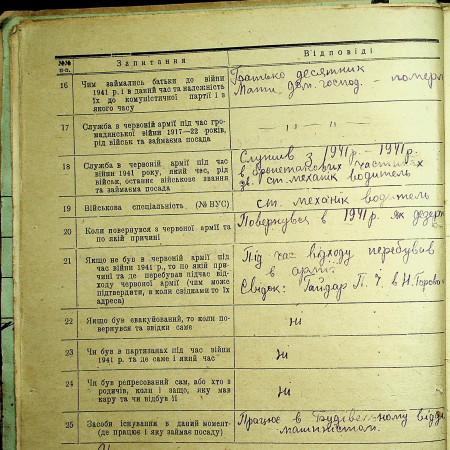 №№ п-п.
Запитання
Відповіді
16
Чим займались батьки до війни
1941 р. і в даний час та належність
їх до комуністичної партії і з
якого часу
Батько десятник
Мати дом. господ. – померл
17
Служба в червоній армії під час гро-
мадянської війни 1917—22 років,
рід військ та займаєма посада
— " — " —
18
Служба в червоній армії під час
війни 1941 року, який час, рід
військ, останнє військове звання
та займаєма посада
Служив з 1941р. – 1941р.
в бронетанкових частинах
зв. ст. механік водитель
19
Військова спеціальність (№ ВУС)
ст. механик водитель
20
Коли повернувся з червоної армії та
по якій причині
Повернувся в 1941р. як дезерт
21
Якщо не був в червоній армії під
час війни 1941 р., то по якій при-
чині та де перебував підчас від-
ходу червоної армії (чим може
підтвердити, в коли свідками то їх
адреса)
Під час відходу перебував
в армії.
Свідок: Гайдар П. в Н.
22
Якщо був евакуйований, то коли по-
вернувся та звідки саме
Ни
23
Чи був в партизанах під час війни
1941 р. та де саме і який час
Ни
24
Чи був репресований сам, або хто з
родичів, коли і защо, яку мав
кару та чи відбув її
Ни
25
Засоби існування в даний момент
(де працює і яку займає посаду)
Працює в Будівельному відді
машиністом.